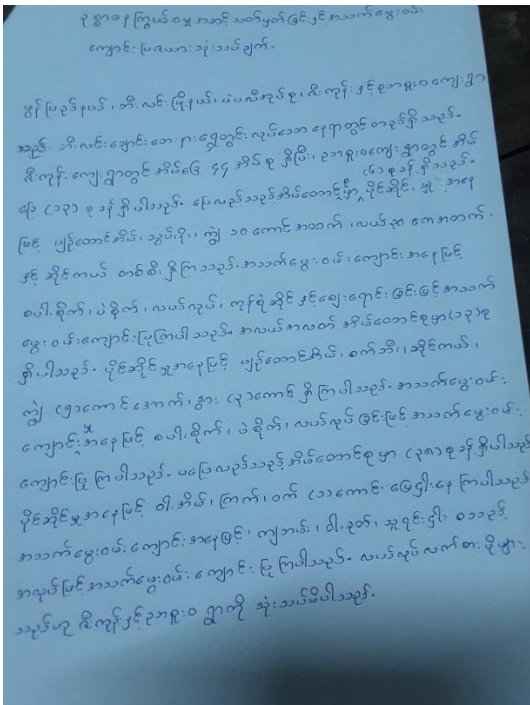 ဥစ္စာဓန ကြွယ်ဝမှု အဆင့် သတ်မှတ်ခြင်းနှင့် အသက်မွေးဝမ်း
ကျောင်း ပြဇယား သုံးသပ်ချက်။
မွန်ပြည်နယ်၊ ဘီးလင်းမြို့နယ်၊ အုပ်စု၊ ဇီးကုန်းနှင့် ကျေးရွာ
သည် ဘီးလင်းချောင်းဘေး နားရွှေတွင်းလုပ်သော နေရာတွင် တည်ရှိသည်။
ဇီးကုန်းကျေးရွာတွင် အိမ်ခြေ ၄၄ အိမ်စု ရှိပြီး၊ ကျေးရွာတွင် အိမ်
ခြေ (၁၃) စု ခန့် ရှိပါသည်။ ပြေလည်သည့်အိမ်ထောင်စုမှာ (၆) စု ခန့် ရှိသည်။ ပိုင်ဆိုင်မှု အနေ
ဖြင့် ပျဉ်ထောင်အိမ်၊ သွပ်မိုး၊ ကျွဲ ၁၀ ကောင်အထက်၊ လယ် ၃၀ ဧကအထက်၊
နှင့် ဆိုင်ကယ် တစ်စီး ရှိကြသည်။ အသက်မွေးဝမ်းကျောင်းအနေဖြင့်
စပါးစိုက်၊ ပဲစိုက်၊ လယ်လုပ်၊ ကုန်စုံဆိုင် နှင့်ဈေးရောင်းခြင်းဖြင့် အသက်
မွေးဝမ်းကျောင်းပြုကြပါသည်။ အလယ်အလတ် အိမ်ထောင်စုမှာ (၁၃) စု
ရှိပါသည်။ ပိုင်ဆိုင်မှုအနေဖြင့် ပျဉ်ထောင်အိမ်၊ စက်ဘီး၊ ဆိုင်ကယ်၊
ကျွဲ (၅) ကောင်အောက်၊ နွား (၃) ကောင် ရှိကြပါသည်။ အသက်မွေးဝမ်း
ကျောင်းမှုအနေဖြင့် စပါးစိုက်၊ ပဲစိုက်၊ လယ်လုပ်ခြင်းဖြင့် အသက်မွေးဝမ်း
ကျောင်းပြုကြပါသည်။ မပြေလည်သည့်အိမ်ထောင်စုမှာ (၃၈) စု ခန့်ရှိပါသည်
ပိုင်ဆိုင်မှုအနေဖြင့် ဝါးအိမ်၊ ကြက်၊ ဝက် (၁) ကောင် မွေးနေကြပါသည်
အသက်မွေးဝမ်းကျောင်းအနေဖြင့်၊ ကျဘမ်း၊ ဝါးခုတ်၊ သူရင်းငှါး စသည့်
အလုပ်ဖြင့် အသက်မွေးဝမ်းကျောင်းပြုကြပါသည်။ လယ်လုပ်လက်စားပိုများ
သည်ဟု ဇီးကုန်းနှင့် ရွာကို သုံးသပ်မိပါသည်။